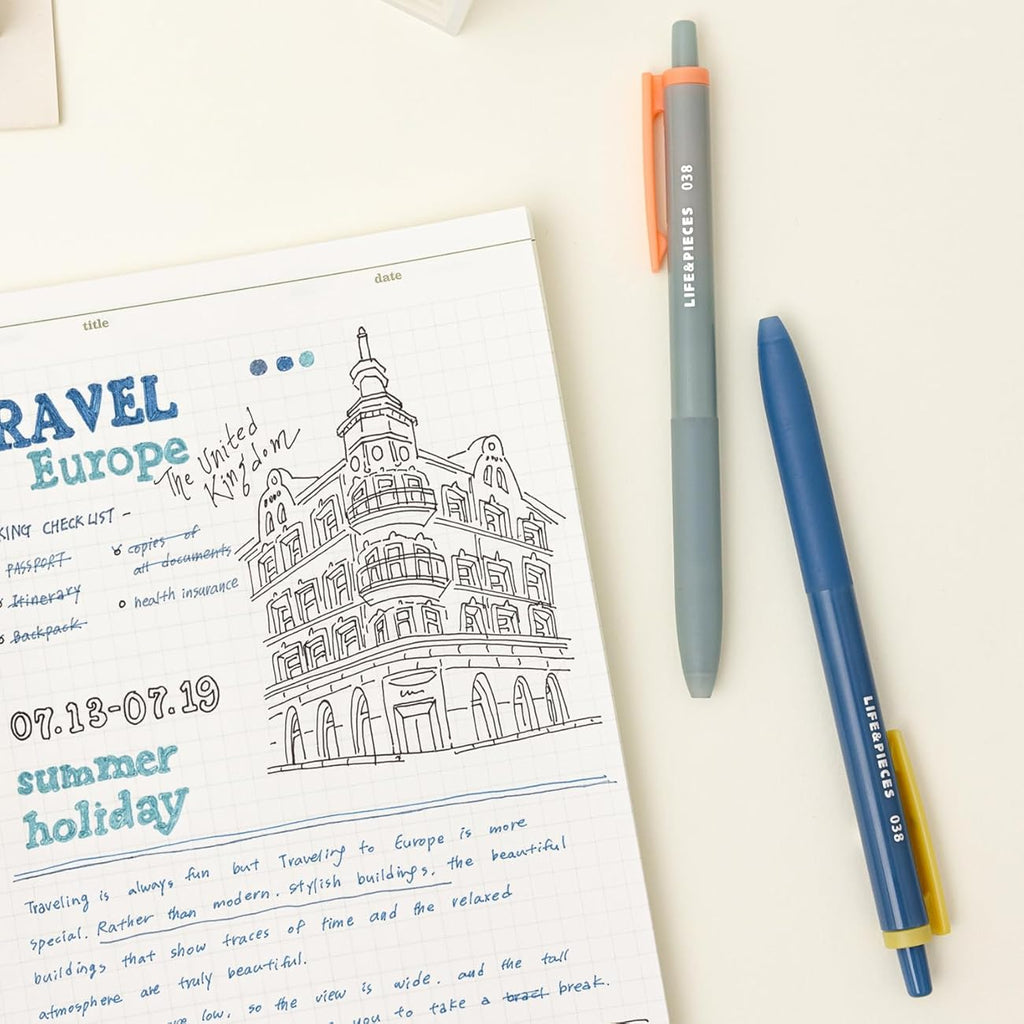 title
date
RAVEL
Europe
The United
Kingdom
KING CHECKLIST -
PASSPORT
Itinerary
Backpack
copies of
all documents
health insurance
07.13-07.19
summer
holiday
Traveling is always fun but Traveling to Europe is more
special. Rather than modern. stylish buildings, the beautiful
buildings that show traces of time and the relaxed
atmosphere are truly beautiful.
low, so the view is wide. and the tall
you to take a break.
LIFE&PIECES 038
LIFE&PIECES 038